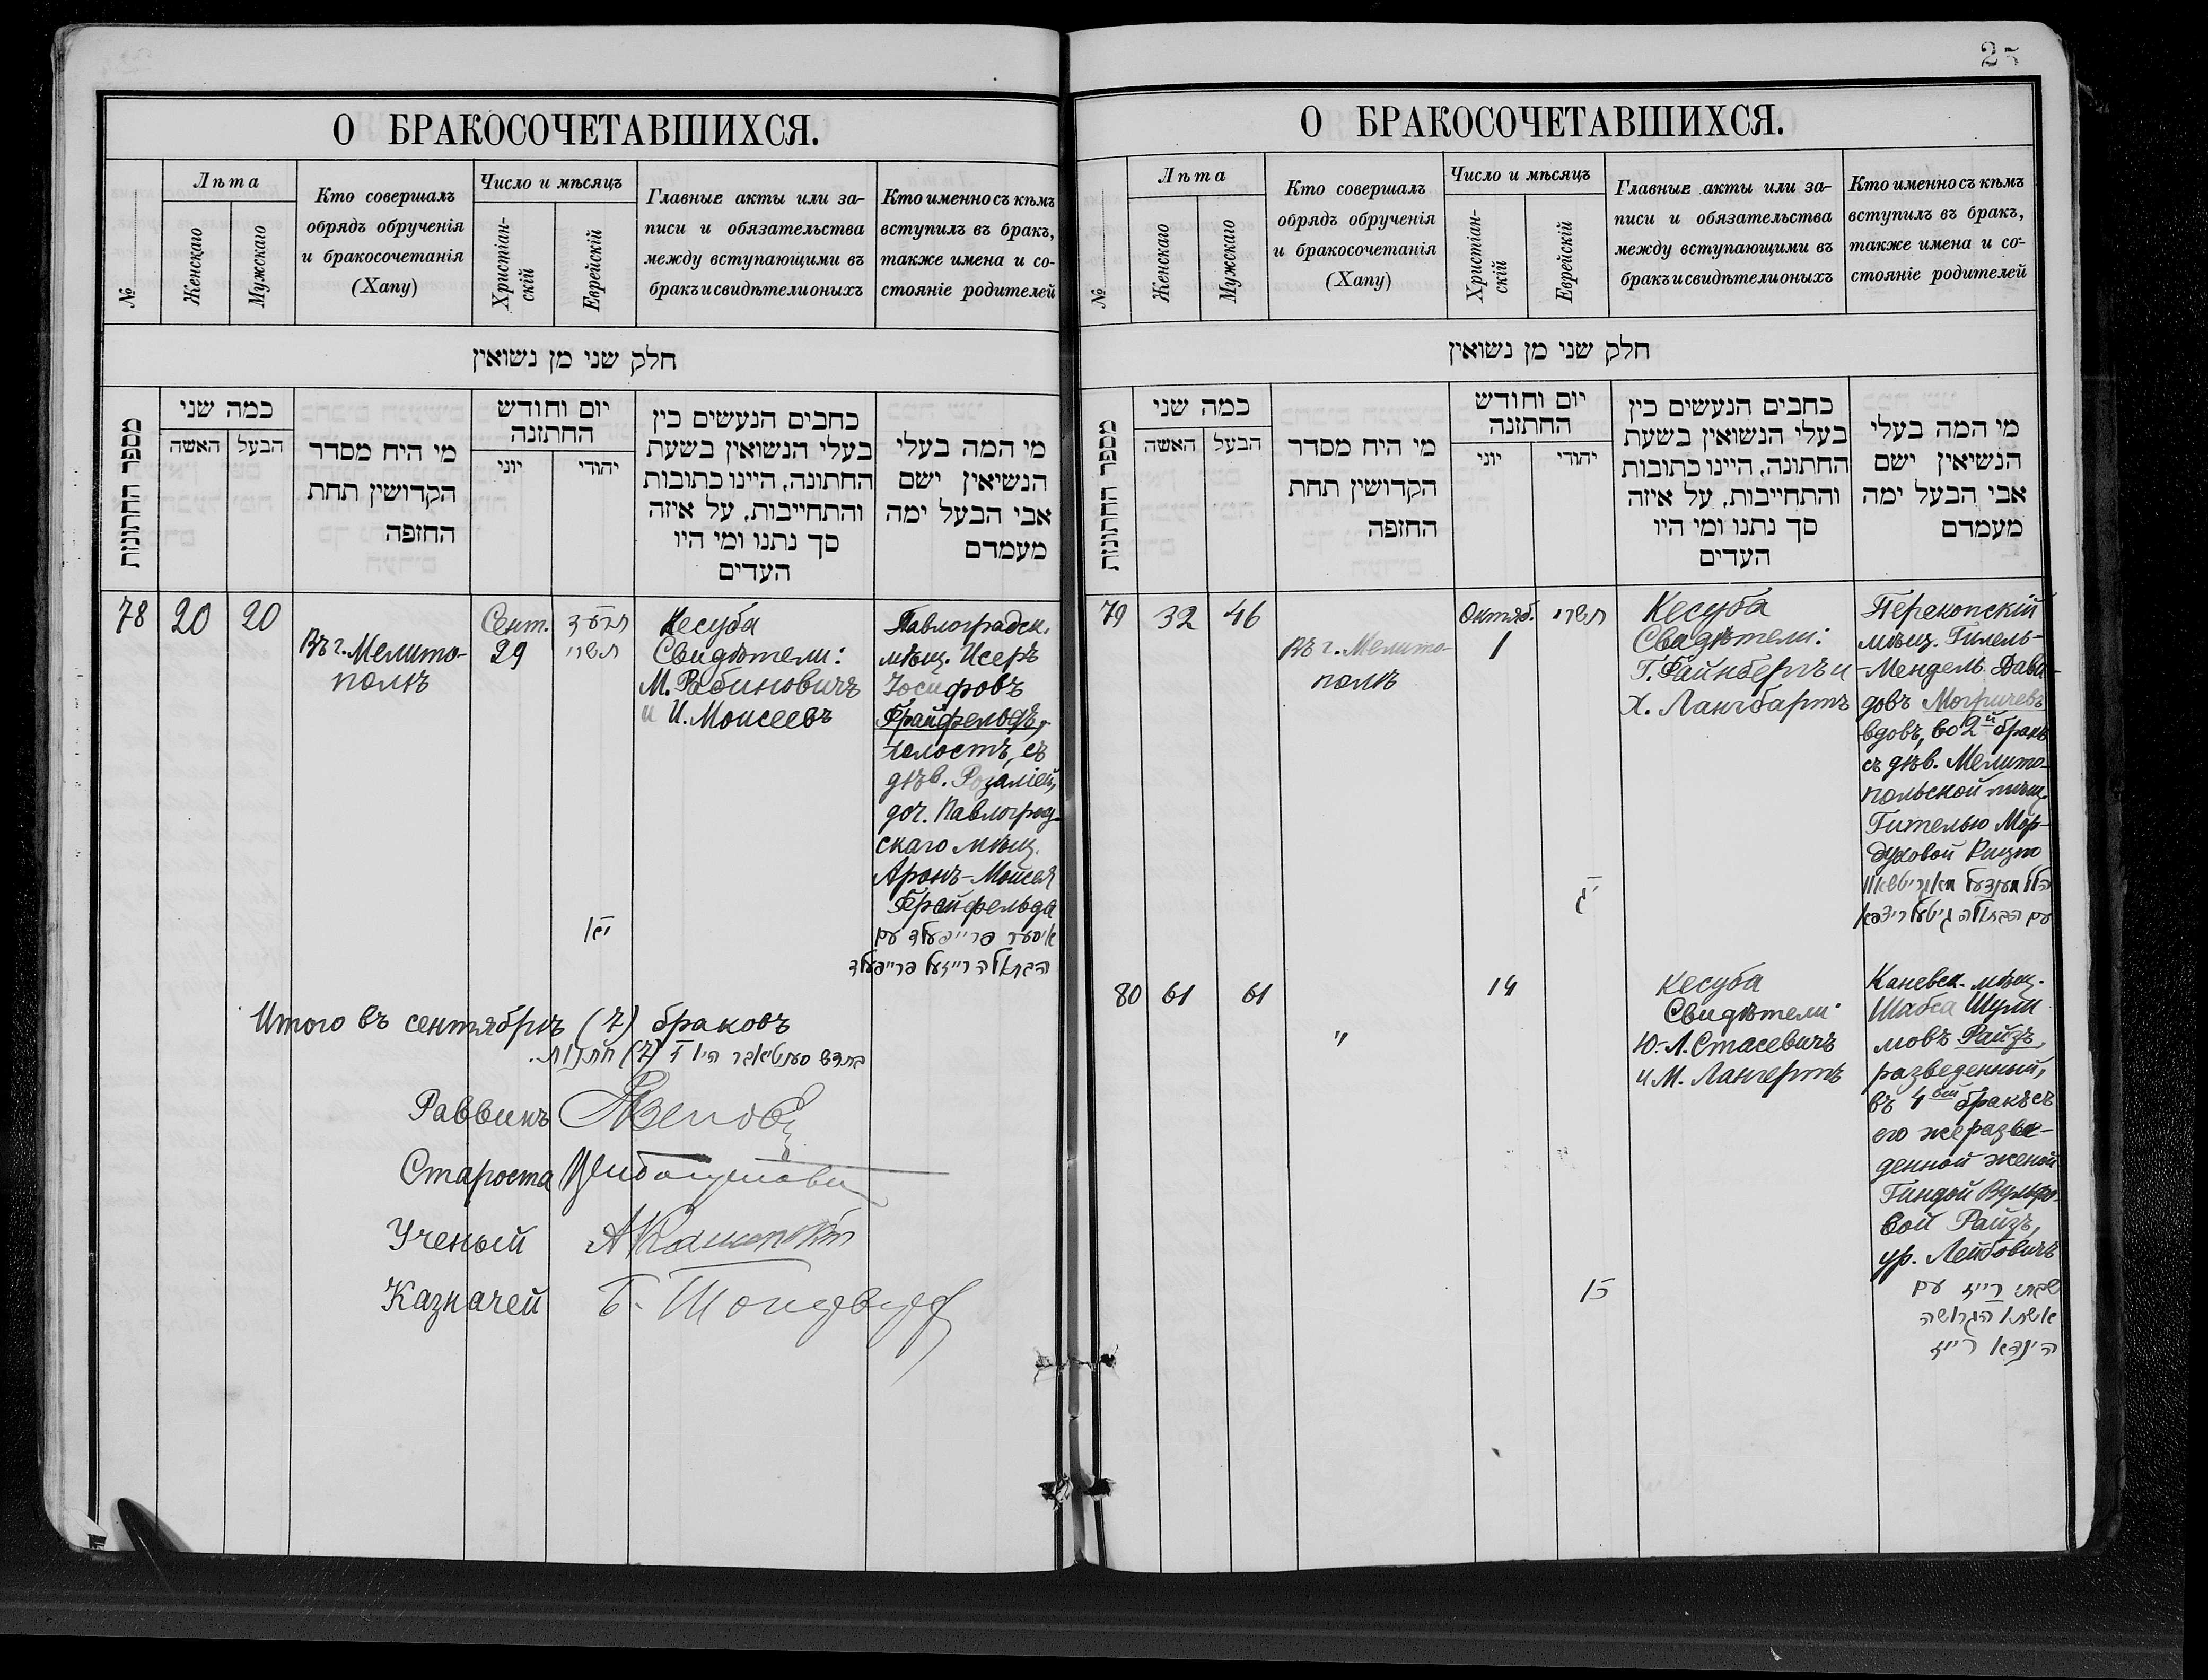 О БРАКОСОЧЕТАВШИХСЯ.
№
Лѣта
Женскаго
Мужскаго
Кто совершалъ
обрядъ обрученія
и бракосочетанія
(Хапу)
Число и мѣсяцъ
Христіан-
скій
Еврейскій
Главные акты или за-
писи и обязательства
между вступающими въ
бракъ и свидѣтели оныхъ
Кто именно съ кѣмъ
вступилъ въ бракъ,
также имена и со-
стояніе родителей
חלק שני מן נשואין
מספר החתונות
כמה שני
האשה
הבעל
מי היח מסדר
הקדושין תחת
החזפה
יום וחודש
החתזנה
יוני
יהודי
כחבים הנעשים כין
בעלי הנשואין בשעת
החתונה, היינו כתובות
והתחייבות, על איזה
סך נתנו ומי היו
העדים
מי המה בעלי
הנשיאין ישם
אבי הבעל ימה
מעמדם
78
20
20
Въ г. Мелито-
полѣ
Сент.
29
תשרי
יאו
Кесуба
Свидѣтели:
М. Рабиновичъ
и И. Моисеевъ
Павлоградск.
мѣщ. Исеръ
Іосифовъ
Фрайфельдъ,
холостъ, съ
дѣв. Розаліей,
доч. Павлоград-
скаго мѣщ.
Аронъ-Мойсея
Фрайфельда
איסער פרייפעלד עם
הבתולה רייזעל פרייפעלד
Итого въ сентябрѣ (7) браковъ
בחדש סעפטיאבר היו ז (7) חתנות.
Раввинъ
Староста
Ученый
Казначей
25
О БРАКОСОЧЕТАВШИХСЯ.
№
Лѣта
Женскаго
Мужскаго
Кто совершалъ
обрядъ обрученія
и бракосочетанія
(Хапу)
Число и мѣсяцъ
Христіан-
скій
Еврейскій
Главные акты или за-
писи и обязательства
между вступающими въ
бракъ и свидѣтели оныхъ
Кто именно съ кѣмъ
вступилъ въ бракъ,
также имена и со-
стояніе родителей
חלק שני מן נשואין
מספר החתונות
כמה שני
האשה
הבעל
מי היח מסדר
הקדושין תחת
החזפה
יום וחודש
החתזנה
יוני
יהודי
כחבים הנעשים כין
בעלי הנשואין בשעת
החתונה, היינו כתובות
והתחייבות, על איזה
סך נתנו ומי היו
העדים
מי המה בעלי
הנשיאין ישם
אבי הבעל ימה
מעמדם
79
32
46
Въ г. Мелито-
полѣ
Октяб.
1
תשרי
יג
Кесуба
Свидѣтели:
Г. Файнбергъ и
Х. Лангбартъ
Перекопскій
мѣщ. Гилель-
-Мендель Дави-
довъ Могричевъ
вдовъ, во 2й бракъ
съ дѣв. Мелито-
польской мѣщ.
Гителью Мор-
духовой
הלל מענדעל
עם הבתולה גיטעל
80
61
61
"
14
Кесуба
Свидѣтели:
Ю.-Л. Стасевичъ
и М. Лангертъ
Каневск. мѣщ.
Шабса Шули
мовъ Райзъ,
разведенный,
въ 4ый бракъ съ
его же разве-
денной женой
Гиндой Вульфо-
вой Райзъ,
ур. Лейбовичъ
שבתי רייז עם
אשתו הגרושה
הינדא רייז